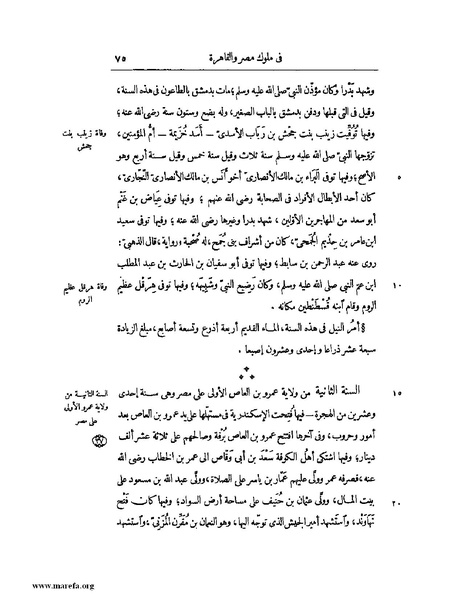 فى ملوك مصر والقاهرة ٧٥
وشهد بَدْرا وكان مؤذّن النبىّ صلى الله عليه وسلم؛ مات بدمشق بالطاعون فى هذه السنة،
وقيل فى التى قبلها ودفن بدمشق بالباب الصغير، وله بضع وستون سنة رضى الله عنه؛
وفيها تُوُفّيت زينب بنت جَحْش بن رِيَاب الأسدىّ - أَسَد خُزَيمة - أُمّ المؤمنين،
وفاة زينب بنت
جحش
تزوّجها النبىّ صلى الله عليه وسلم سنة ثلاث وقيل سنة خمس وقيل سنة أربع وهو
٥
الأصح؛ وفيها توفى البَرَاء بن مالك الأنصارىّ أخو أنَس بن مالك الأنصارىّ النَّجَّارىّ،
كان أحد الأبطال الأفراد فى الصحابة رضى الله عنهم؛ وفيها توفى عِيَاض بن غَنْم
أبو سعد من المهاجرين الأوّلين، شهد بدرا وغيرها رضى الله عنه؛ وفيها توفى سعيد
ابن عامر بن حِذْيَم الجُمَحىّ، كان من أشراف بنى جُمَح، له صُحْبة ورواية، قال الذهبىّ:
روى عنه عبد الرحمن بن سابط؛ وفيها توفى أبو سفيان بن الحارث بن عبد المطلب
ابن عم النبى صلى الله عليه وسلم، وكان رَضِيع النبىّ وشَبِيهَه؛ وفيها توفى هِرَقْل عظيم
١٠
وفاة هرقل عظيم
الروم
الروم وقام آبنه قُسْطَنْطِين مكانه.
§ أمر النيل فى هذه السنة، المـاء القديم أربعة أذرع وتسعة أصابع، مبلغ الزيادة
سبعة عشر ذراعا وإحدى وعشرون إصبعا.
السنة الثانية من ولاية عمرو بن العاص الأولى على مصر وهى سنة إحدى
١٥
السنة الثانية من
ولاية عمرو الأولى
على مصر
وعشرين من الهجرة - فيها فُتحت الإسكندرية فى مستهلّها على يد عمرو بن العاص بعد
أمور وحروب، وفى آخرها افتتح عمرو بن العاص بُرْقة وصالحهم على ثلاثة عشر ألف
دينار؛ وفيها اشتكى أهل الكوفة سَعْد بن أبى وَقّاص الى عمر بن الخطاب رضى الله
عنه، فصرفه عمر وولّى عليهم عَمّار بن ياسر على الصلاة، وولّى عبد الله بن مسعود على
بيت المـال، وولى عثمان بن حُنَيف على مساحة أرض السواد؛ وفيها كان فَتْح
٢٠
نَهَاوَنْد، وآستُشهد أمير الجيش الذى توجّه اليها، وهو النعمان بن مُقَرِّن المُزَنىّ، وآستُشهد
www.marefa.org